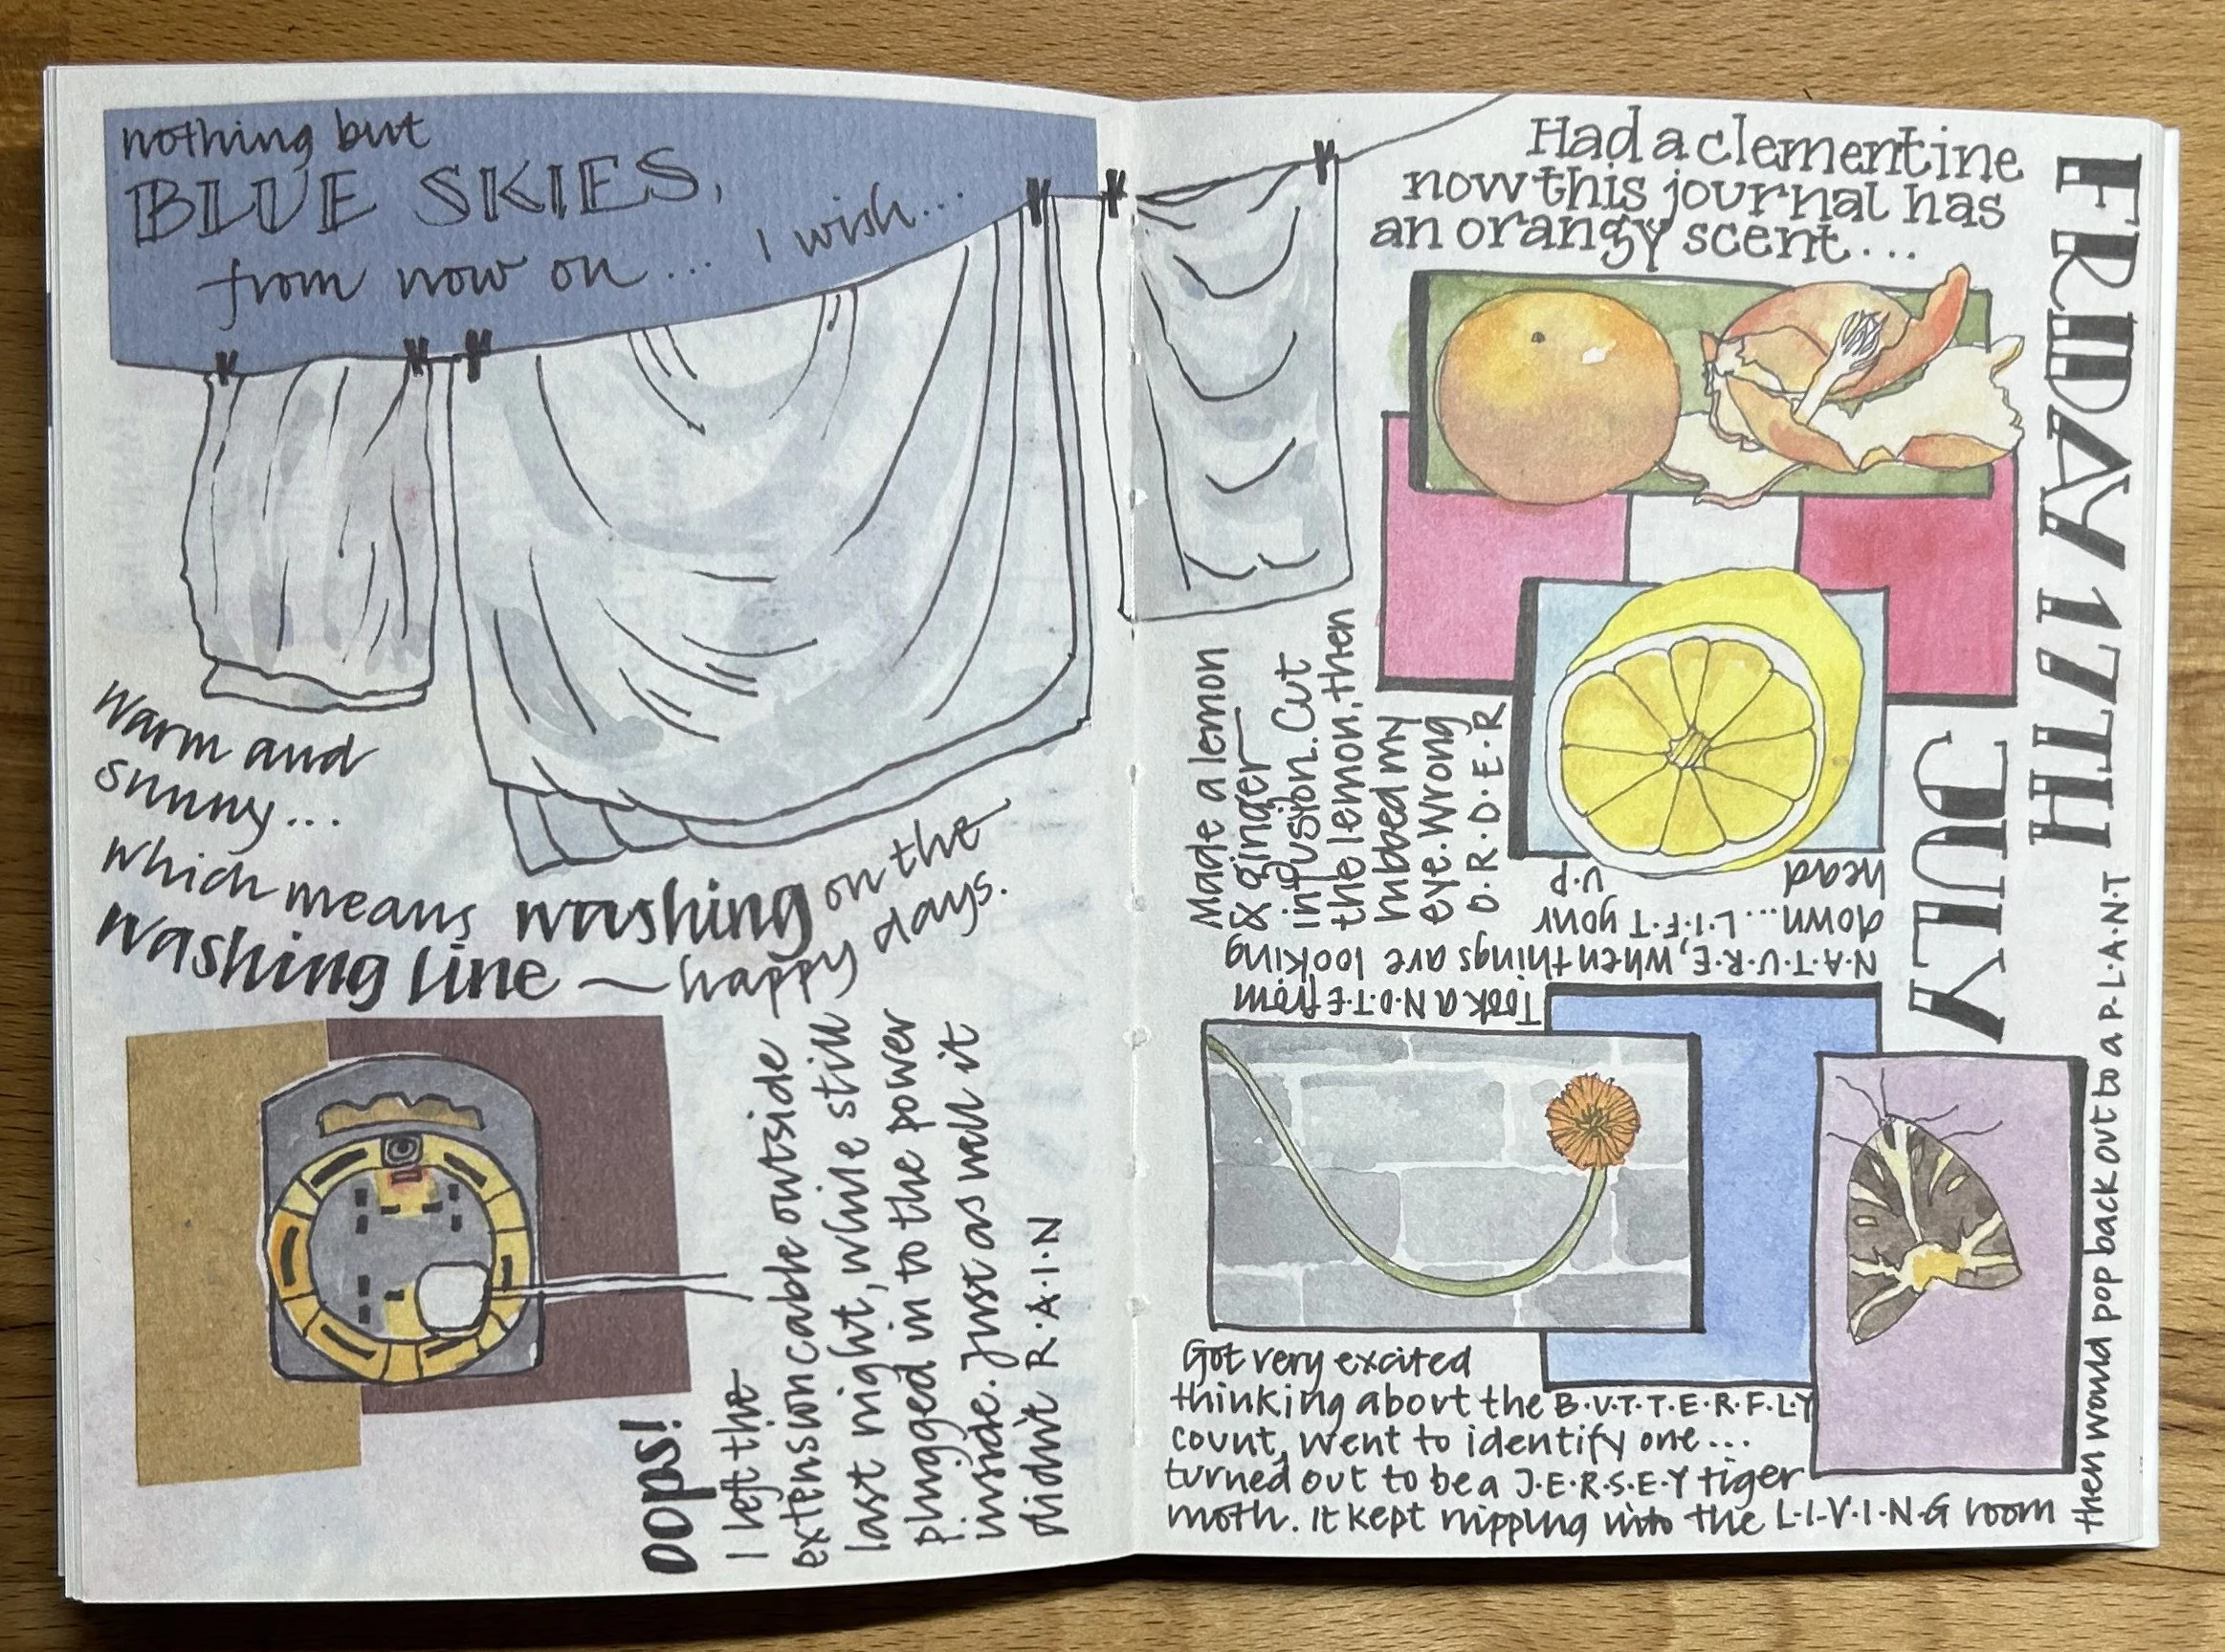 nothing but
BLUE SKIES,
from now on... I wish...
Warm and
sunny...
which means washing on the
washing line — happy days.
OOPS!
I left the
extension cable outside
last night, while still
plugged in to the power
inside. Just as well it
didn't R·A·I·N
Had a clementine
now this journal has
an orangy scent...
FRIDAY 17TH
JULY
Made a lemon
& ginger
infusion. Cut
the lemon, then
rubbed my
eye. Wrong
O·R·D·E·R
Took a N·O·T·E from
N·A·T·U·R·E, when things are looking
down.... L·I·F·T your
head U·P
Got very excited
thinking about the B·U·T·T·E·R·F·L·Y
count, went to identify one...
turned out to be a J·E·R·S·E·Y tiger
moth. It kept nipping into the L·I·V·I·N·G room
then would pop back out to a P·L·A·N·T